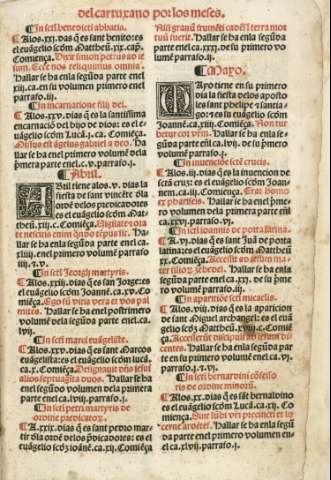 del cartuxano por los meses.
¶ In scti benedicti abbatis.
¶ A los .xxi. dias q̃ es sant benito: es
el euãgelio scõm Mattheũ .xix. cap.
Comiẽça. Dixit simon petrus ad ie
sum. Ecce nos reliquimus omnia.
Hallar se ha enla segũda parte enel
xii. ca. en su volumen primero enel
parrafo .iii.
¶ In incarnatione filij dei.
¶ A los .xxv. dias q̃ es la santissima
encarnaciõ del hijo de dios: es el euã
gelio scõm Lucã .i. ca. Comiẽça.
Missus est ãgelus gabriel a deo. Ha
llar se ha enel primero volumẽ dela
p̃mera parte enel .c. v. parrafo .i.
¶ Abril.
Abril tiene a los .v. dias la
fiesta de sant vincẽte dla
ordẽ delos predicadores
es el euãgelio scõm Mat
theũ .xxiiii. c. Comiẽça. Vigilate: q̃a
nescitis
lar se ha enla segũda parte enel ca.
xliii. enel primero volumen parrafo
iiij. z .v.
¶ In scti Georgij martyris.
¶ A los .xxiij. dias q̃ es san Jorge: es
el euãgelio scõm Joannẽ .ca. xv. Co
miẽça. Ego sũ vitis vera et vos pal
mites. Hallar se ha enel postrimero
volumẽ dela segũda parte enel .ca.
lvij.
¶ In scti marci euãgeliste.
¶ A los .xxv. dias q̃ es sant Marcos
euãgelista: es el euãgelio scõm luca.
ca. x. Comiẽça. Designauit dñs iesus
alios septuaginta duos. Hallar se ha
enel segũdo volumen dela primera
parte enel ca. lvij. parrafo .i.
¶ In scti petri martyris de
ordine predicatoꝝ.
¶ A .xxix. dias q̃ es sant pedro mar
tir dla ordẽ delos p̃dicadores: es el
euãgelio scõm joãnẽ .ca. xij. Comiẽça
Nisi granũ frumẽti cadẽs ĩ terra mor
tuũ fuerit. Hallar se ha enla segũda
parte enel ca. xxxi. de su primero vo
lumẽ parrafo .ii.
¶ Mayo.
Mayo tiene en su primero
dia la fiesta delos aposto
les sant phelipe z santia
go: z es su euãgelio scõm
Joannẽ .ca. xiiij. Comiẽça. Non tur
betur cor vr̃m. Hallar se ha enla se
gũda parte enel ca. lvij. de su p̃mero
volumen parrafo .ii.
¶ In inuenciõe sctẽ crucis.
¶ A los .iij. dias q̃ es la inuencion de
sctã cruz: es el euãgelio scõm Joan
nem .ca. iij. Comiẽça. Erat homo
ex phariseis. Hallar se ha enel pri
mero volumẽ dela primera parte enl
ca. xxvi. parrafo .vi.
¶ In scti joannis de porta latina.
¶ A .vi. dias q̃ es san Juã de porta
latina: es el euãgelio scõm Mattheũ
xx. Comiẽça. Accessit ad iesum ma
ter filioꝝ zebedei. Hallar se ha enla
segũda parte enel ca. xxj. de su pri
mero volumẽ parrafo .iij.
¶ In apariciõe scti micaelis.
¶ A los .viij. dias q̃ es la aparicion
de sant Miguel archangel: es el euã
gelio scõm Mattheũ .xviij. ca. Comiẽ
ça. Accesserũt discipuli ad iesum di
centes. Hallar se ha enla segũda par
te en su primero volumẽ enel ca. vj.
parrafo .i. z .vi.
¶ In scti bernardini cõfesso
ris de ordine minorũ.
¶ A los .xx. dias q̃ es sãt bernaldino
es el euãgelio scõm Lucã .ca. xij. Co
miẽça. Sint lũbi vr̃i precincti et lu
cerne ardẽtes. Hallar se ha enla segũ
da parte enel su primero volumen en
el ca. xlvi. parrafo .i.